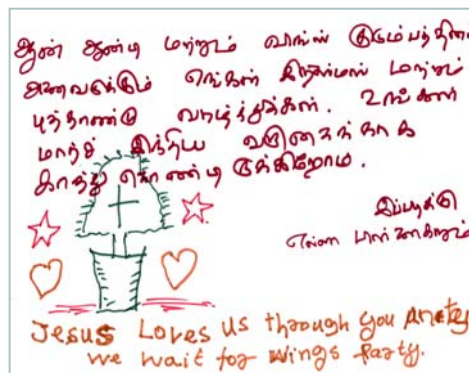 ஆன் ஆண்டி மற்றும் வாங்ஸ் குடும்பத்தின
அனைவருக்கும் எங்கள் கிறிஸ்மஸ் மற்றும்
புத்தாண்டு வாழ்த்துக்கள். உங்கள
மார்ச் இந்திய வருகைக்காக
காத்து கொண்டிருக்கிறோம்.
இப்படிக்கு
எல்லா
Jesus Loves us through you Anety
we wait for wings party.